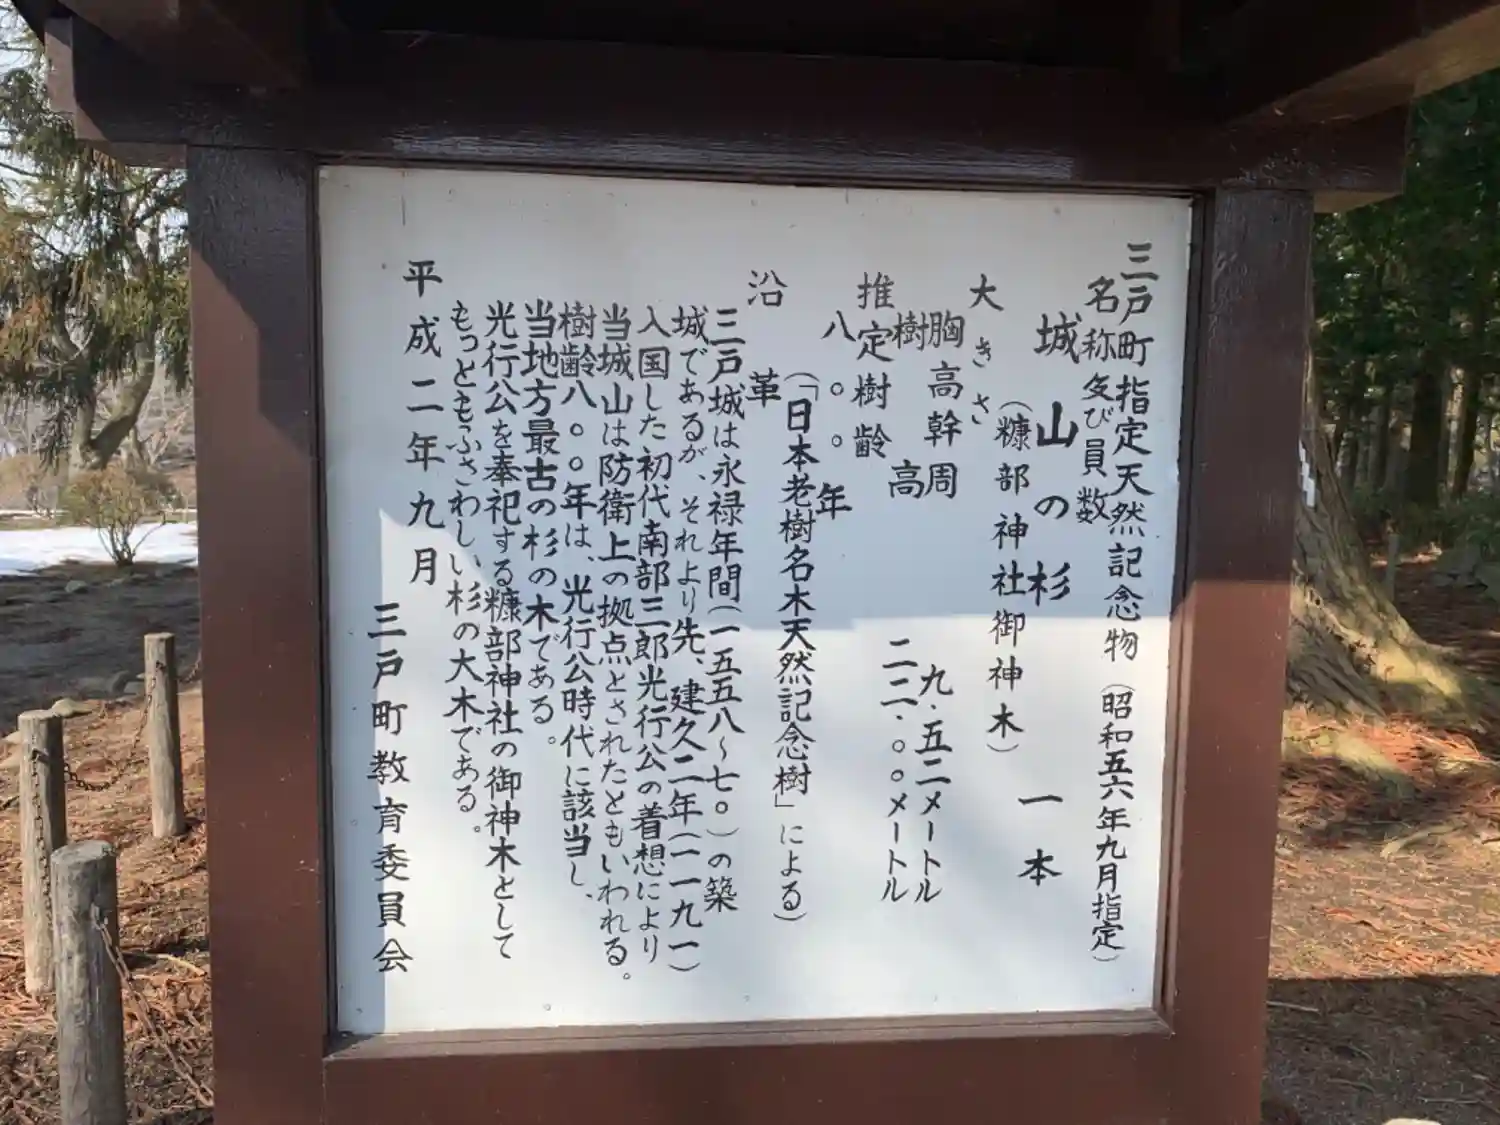 三戸町指定天然記念物（昭和五六年九月指定）
名称及び員数
城山の杉　一本
（糠部神社御神木）
大きさ
胸高幹周　九．五二メートル
樹高　二二．〇〇メートル
推定樹齢
八〇〇年
（「日本老樹名木天然記念樹」による）
沿革
三戸城は永禄年間（一五五八～七〇）の築
城であるが、それより先、建久二年（一一九一）
入国した初代南部三郎光行公の着想により
当城山は防衛上の拠点とされたともいわれる。
樹齢八〇〇年は、光行公時代に該当し、
当地方最古の杉の木である。
光行公を奉祀する糠部神社の御神木として
もっともふさわしい杉の大木である。
平成二年九月
三戸町教育委員会